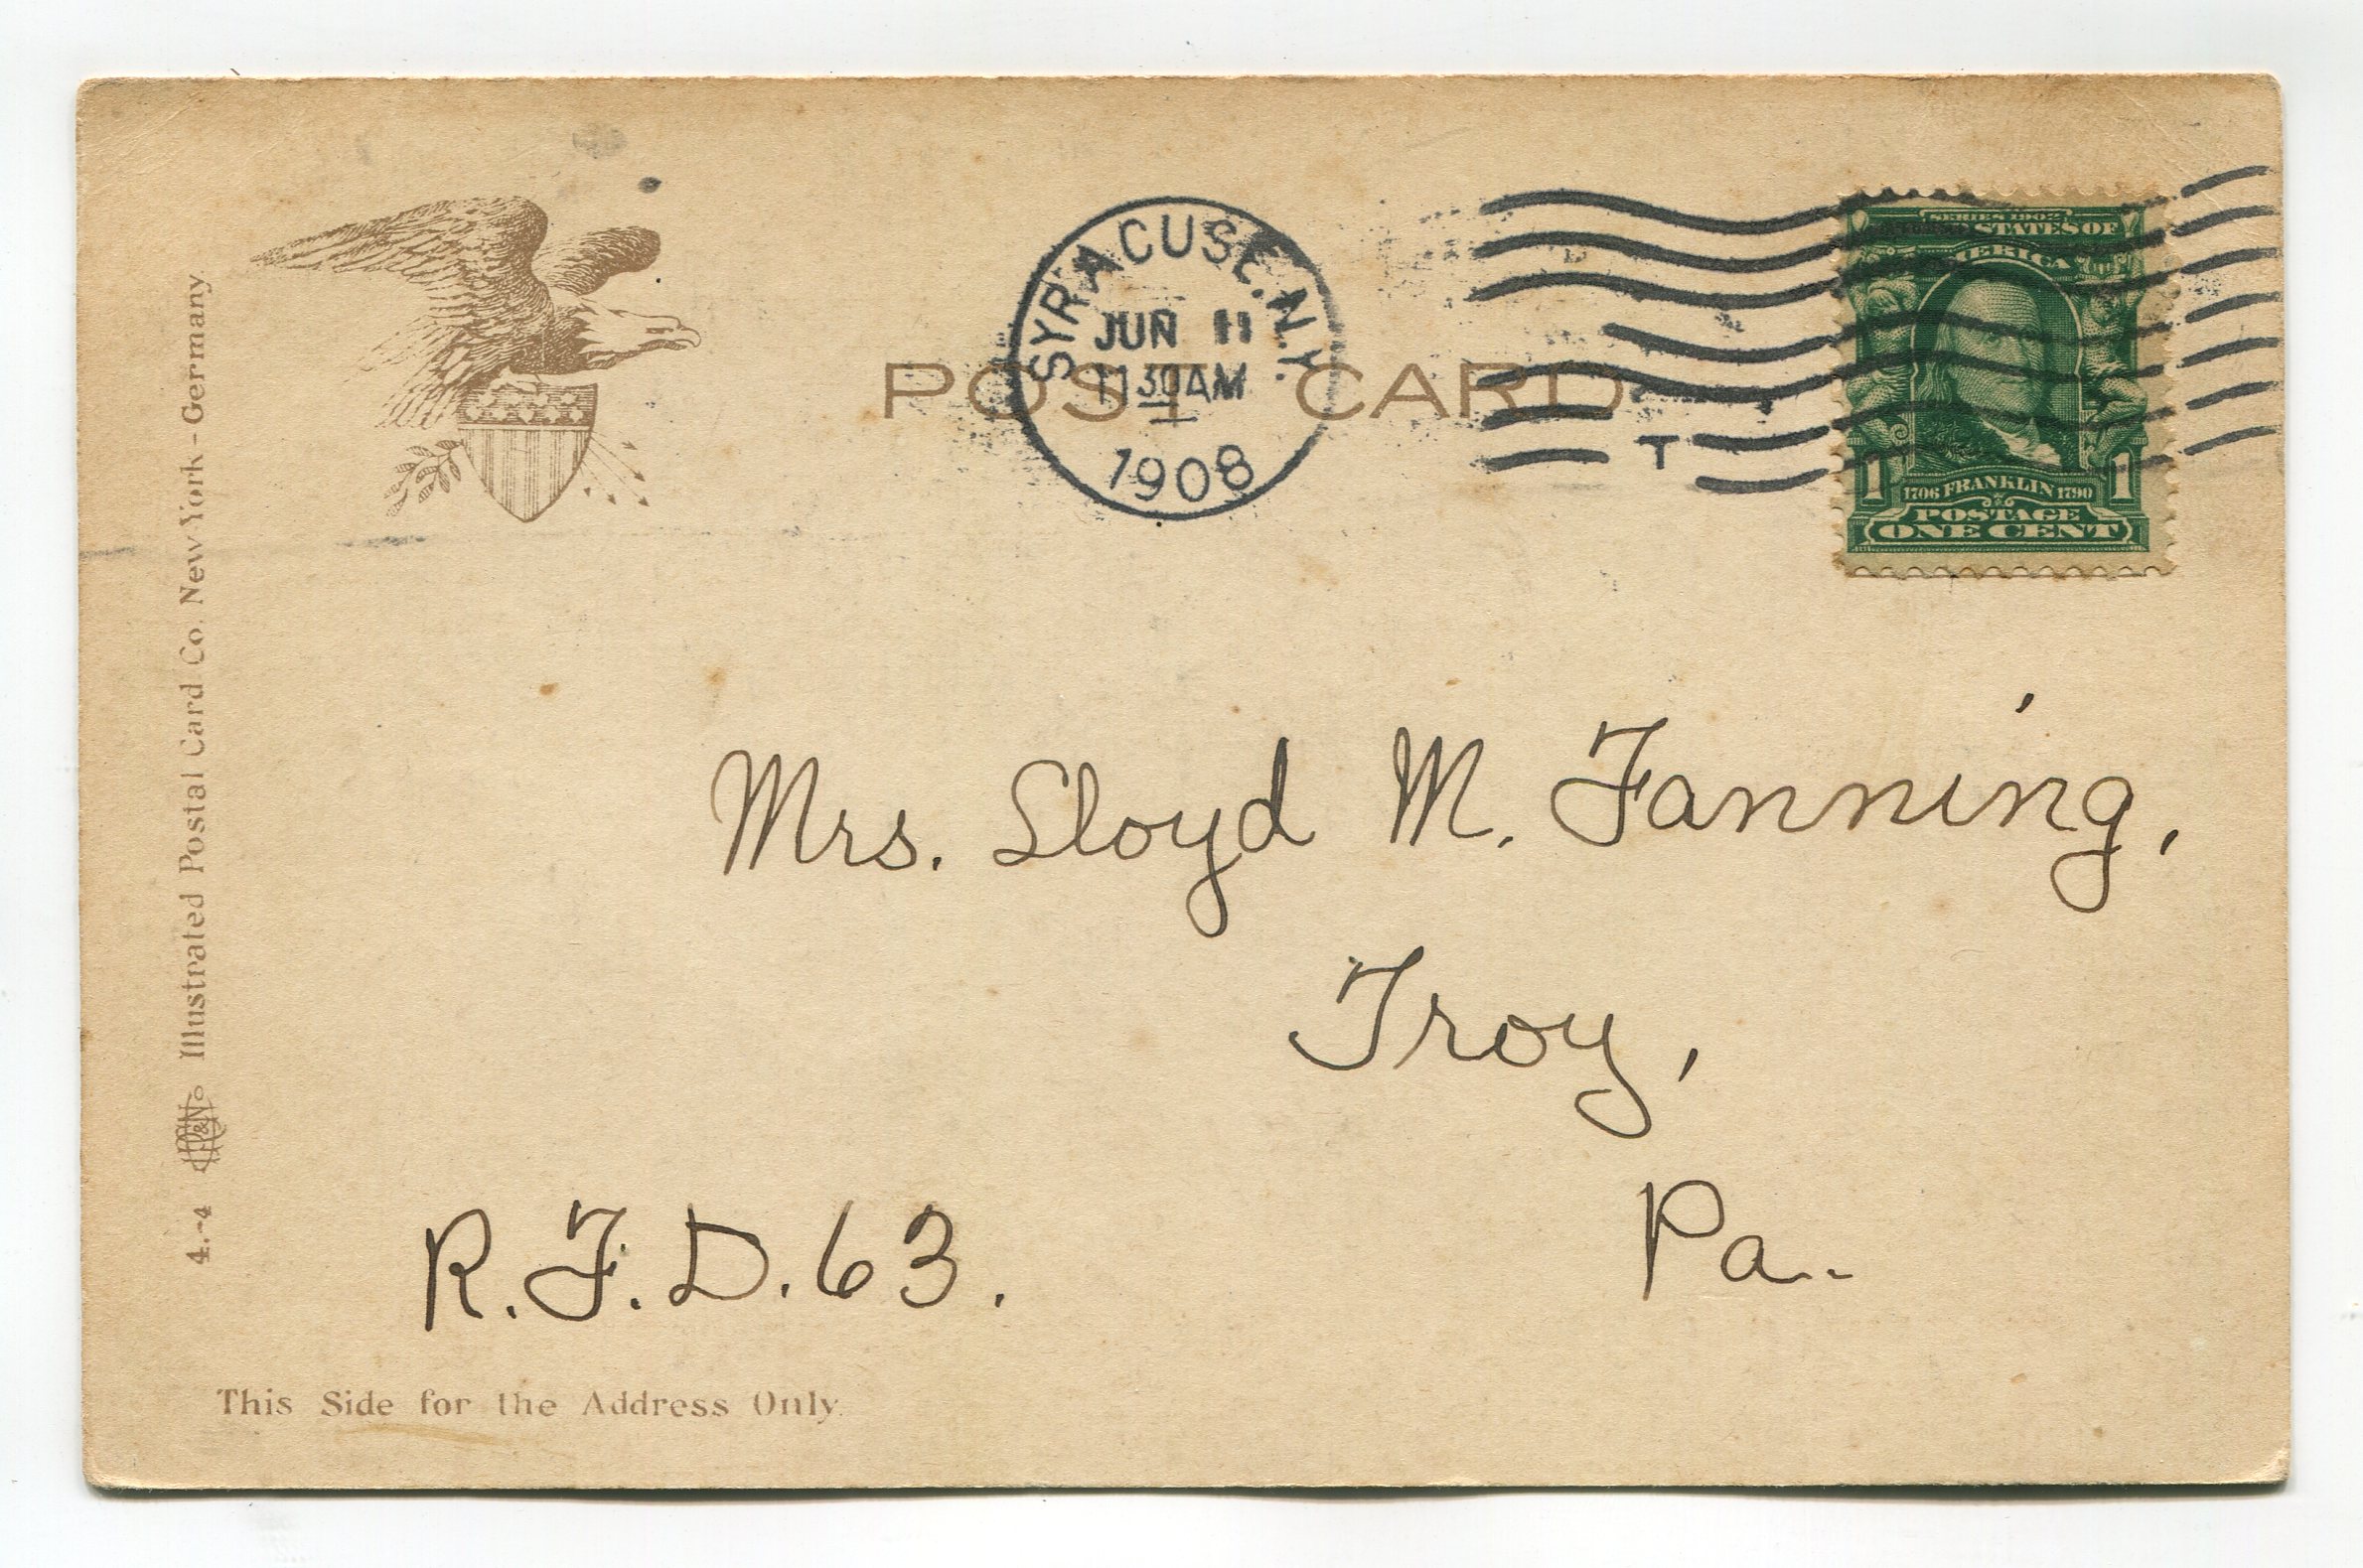 SYRACUSE, N.Y.
JUN 11
11 30 AM
1908
POST CARD
T
SERIES 1902
STATES OF
1706 FRANKLIN 1790
1 1
POSTAGE
ONE CENT
Mrs. Lloyd M. Fanning,
Troy,
Pa.
R.F.D. 63.
This Side for the Address Only.
4.-4 Illustrated Postal Card Co. New York - Germany.